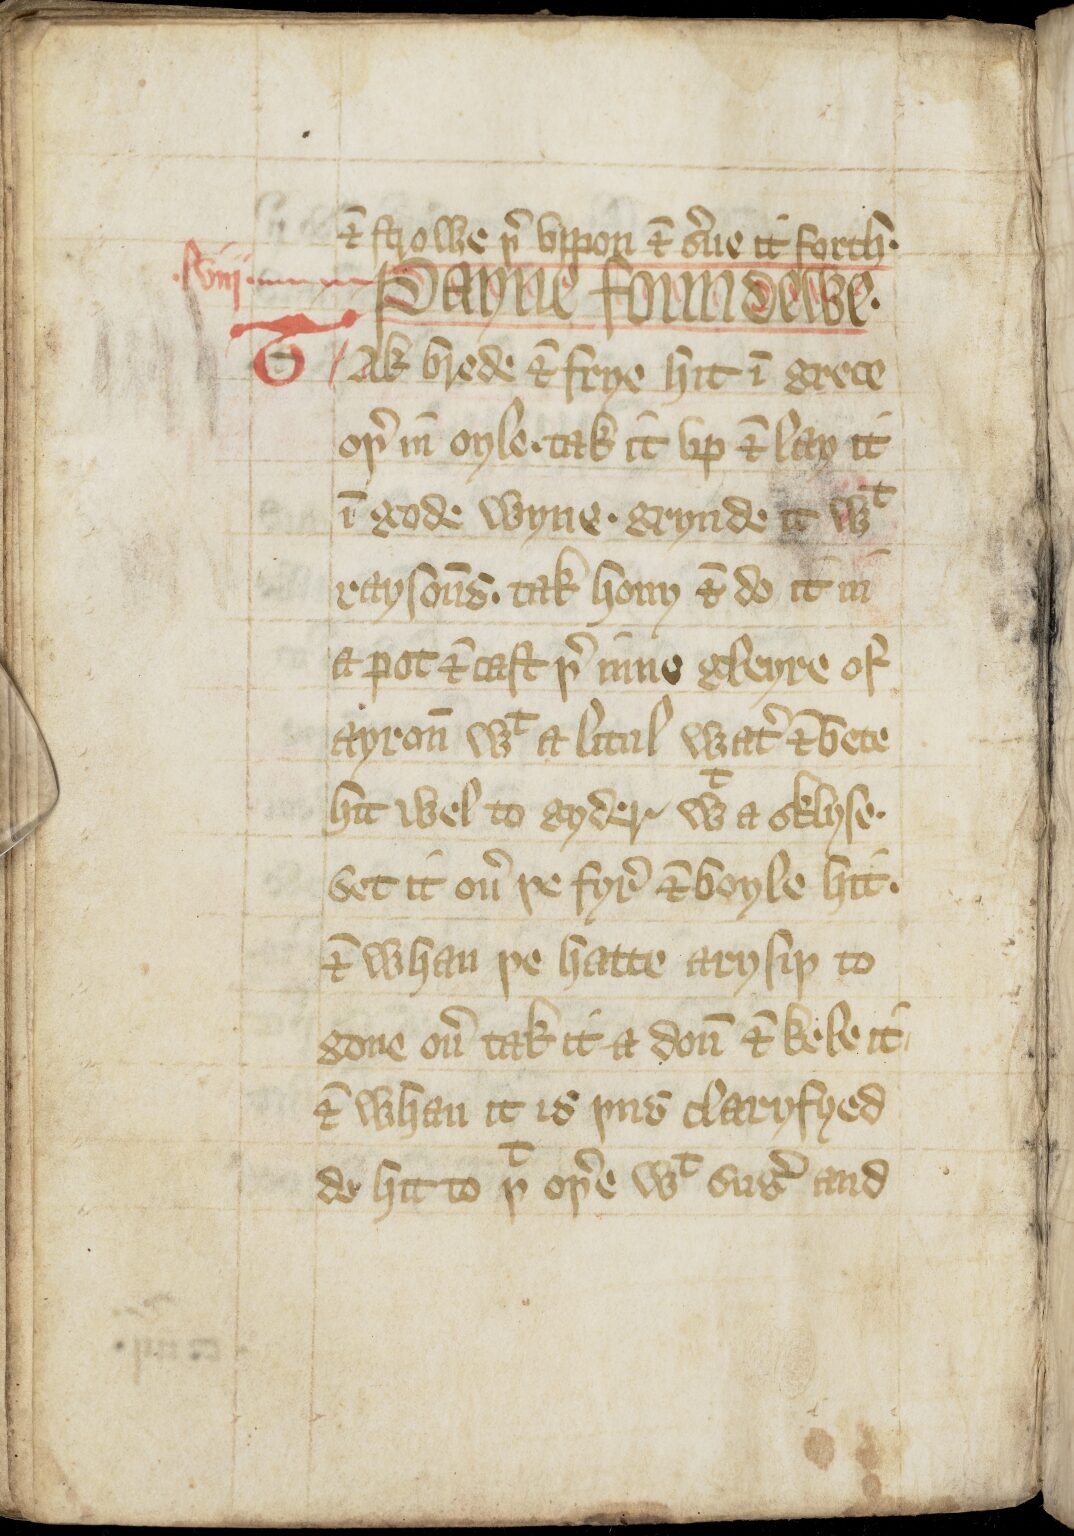 ⁊ strowe þ̉ vppon ⁊ s̉ue it forth·
·lviij· Payne foundewe·
Tak brede ⁊ frye hit ī grece
oþ̉ in oyle· tak it vp ⁊ lay it
ī gode wyne· grynde it wᵗ
raysoūs· tak hony ⁊ do it in
a pot ⁊ cast þ̉ inne gleyre of
ayroūn wᵗ a litul wat̉ ⁊ bete
hit wel to gyder wᵗ a sklyse·
Set it oủ þe fyr̉ ⁊ boyle hit·
⁊ whan þe hatte arysiþ to
gone oủ tak it a doun̄ ⁊ kele it
⁊ whan it is þus claryfyed
do hit to þᵗ oþ̉e wᵗ sug̉ and